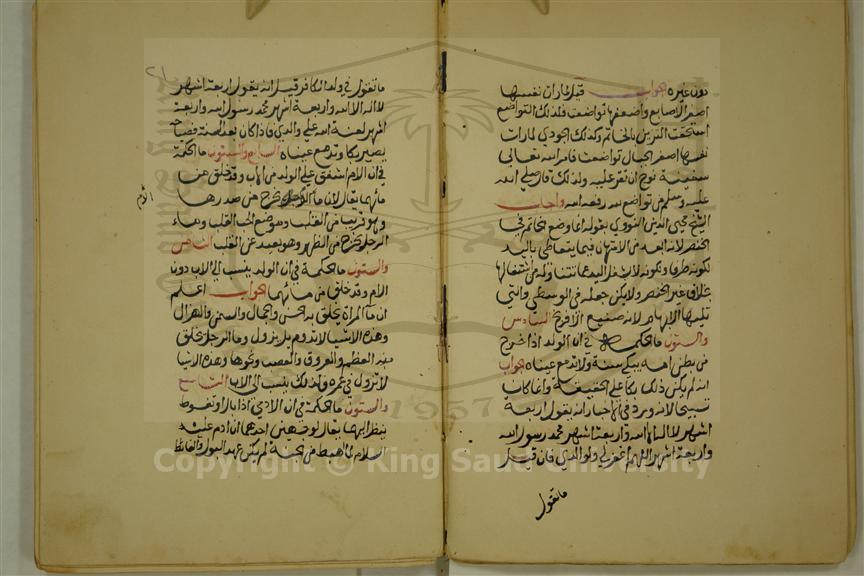 دون غيره الجواب قيل لما رات نفسها
اصغر الاصابع واضعفها تواضعت فلذلك التواضع
استحقت التزين بالخاتم وكذلك الجودي لما رات
نفسها اصغر الجبال تواضعت فامر الله تعالى
سفينة نوح ان تقر عليه ولذلك قال صلى الله
عليه وسلم من تواضع لله رفعه الله واجاب
الشيخ محيي الدين النووي بقوله انما وضع الخاتم في
الخنصر لانه ابعد من الامتهان فيما يتعاطى باليد
لكونه طرفا ولكونه لا يشغل اليد عما تتناوله من اشغالها
بخلاف غير الخنصر ولا يكن جعله في الوسطى والتي
تليها الابهام لانه صنيع الافرنج السادس
والستون ما الحكمة في ان الولد اذا خرج
من بطن امه يبكي سنة ولا تدمع عيناه الجواب
انه لم يكن ذلك بكا على الحقيقة وانما كان
تسبيحا لانه ورد في الاخبار انه يقول اربعة
اشهر لا اله الا الله واربعة اشهر محمد رسول الله
واربعة اشهر اللهم اغفر لي ولوالدي فان قيل
ما تقول
٢١
ما تقول في ولد الكافر قيل انه يقول اربعة اشهر
لا اله الا الله واربعة اشهر محمد رسول الله واربعة
اشهر لعنة الله على والدي فاذا كان بعد السنة
يصير بكا وتدمع عيناه السابع والستون ما الحكمة
في ان الام اشفق على الولد من الاب وقد خلق من
مائهما يقال لان ما الام خرج من صدرها
الام
وهو قريب من القلب وهو موضع الحب القلب وماء
الرجل يخرج من الظهر وهو بعيد عن القلب الثامن
والستون ما الحكمة في ان الولد ينسب الى الاب دون
الام وقد خلق من مائهما الجواب اعلم
ان ما المراة يخلق به الحسن والجمال والسمن والهزال
وهذه الاشيا لا تدوم بل تزول وما الرجل يخلق
منه العظم والعروق والعصب ونحوها وهذه الاشيا
لا تزول في عمره فلذلك ينسب الى الاب التاسع
والستون ما الحكمة في ان الادمي اذا بال او تغوط
ينظر اليهما يقال لوجهين احدهما ان ادم عليه
السلام لما اهبط من الجنة لم يكن عهد البول والغائط
Copyright © King Saud University
1957